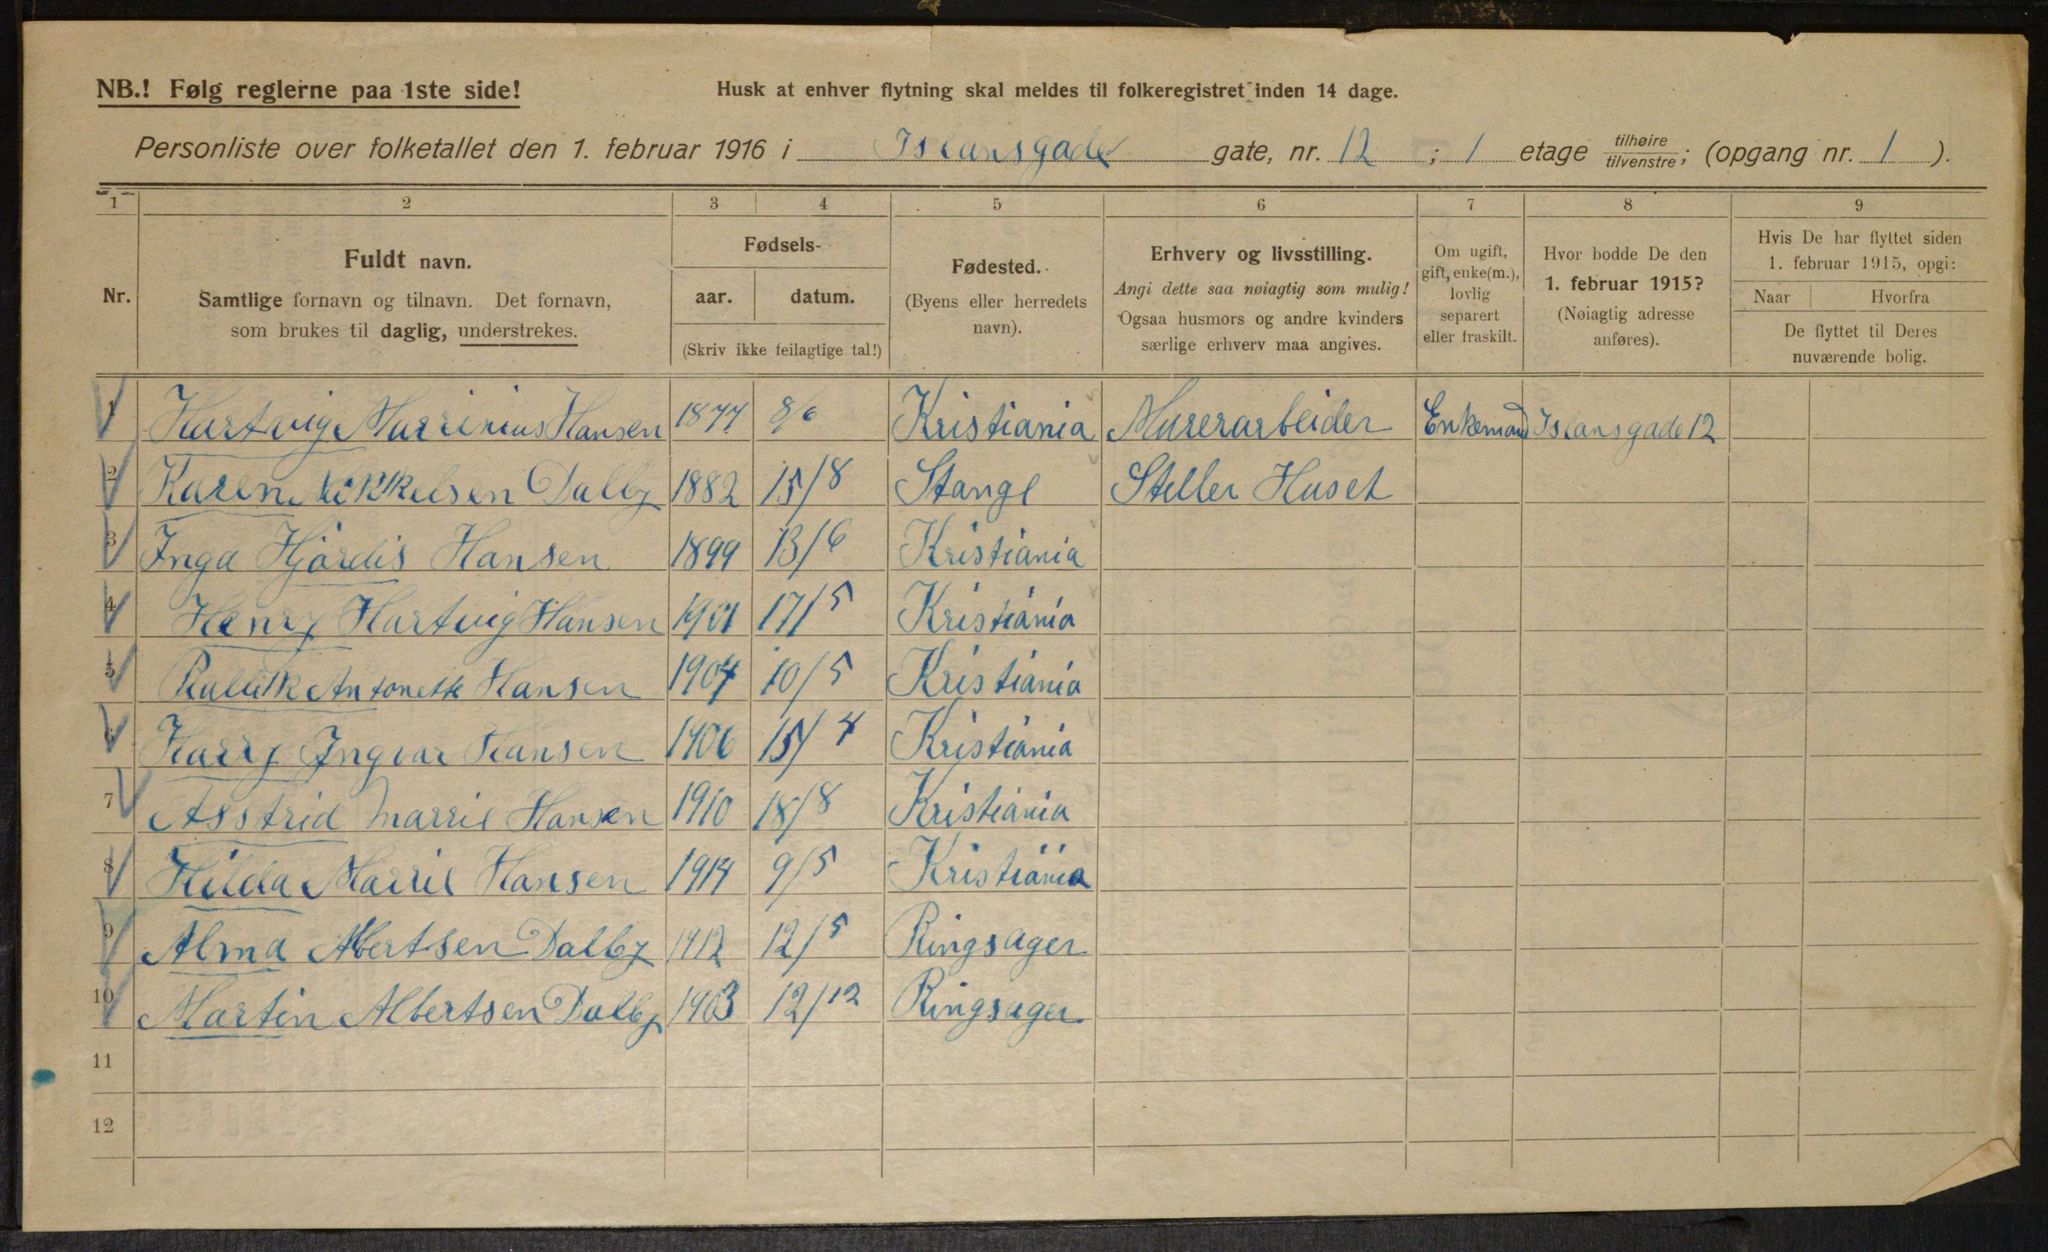 NB.! Følg reglerne paa 1ste side!
Husk at enhver flytning skal meldes til folkeregistret inden 14 dage.
Personliste over folketallet den 1. februar 1916 i Islansgade gate, nr. 12 ; 1 etage tilhøire tilvenstre; (opgang nr. 1 ).
1 2 3 4 5 6 7 8 9
Nr.
Fuldt navn.
Samtlige fornavn og tilnavn. Det fornavn,
som brukes til daglig, understrekes.
Fødsels-
aar. datum.
(Skriv ikke feilagtige tal!)
Fødested.
(Byens eller herredets
navn).
Erhverv og livsstilling.
Angi dette saa nøiagtig som mulig!
Ogsaa husmors og andre kvinders
særlige erhverv maa angives.
Om ugift,
gift, enke(m.),
lovlig
separert
eller fraskilt.
Hvor bodde De den
1. februar 1915?
(Nøiagtig adresse
anføres).
Hvis De har flyttet siden
1. februar 1915, opgi:
Naar Hvorfra
De flyttet til Deres
nuværende bolig.
1 Hartvig Marrinius Hansen 1877 8/6 Kristiania Murerarbeider Enkemand Islansgade 12
2 Karen Nikkelsen Dalby 1882 15/8 Stange Steller Huset
3 Inga Hjørdis Hansen 1899 13/6 Kristiania
4 Henry Hartvig Hansen 1901 17/5 Kristiania
5 Antonette Hansen 1904 10/5 Kristiania
6 Harry Ingvar Hansen 1906 15/4 Kristiania
7 Asstrid Marrie Hansen 1910 18/8 Kristiania
8 Hilda Marrie Hansen 1914 9/5 Kristiania
9 Alma Albertsen Dalby 1912 12/5 Ringsager
10 Martin Albertsen Dalby 1903 12/12 Ringsager
11
12